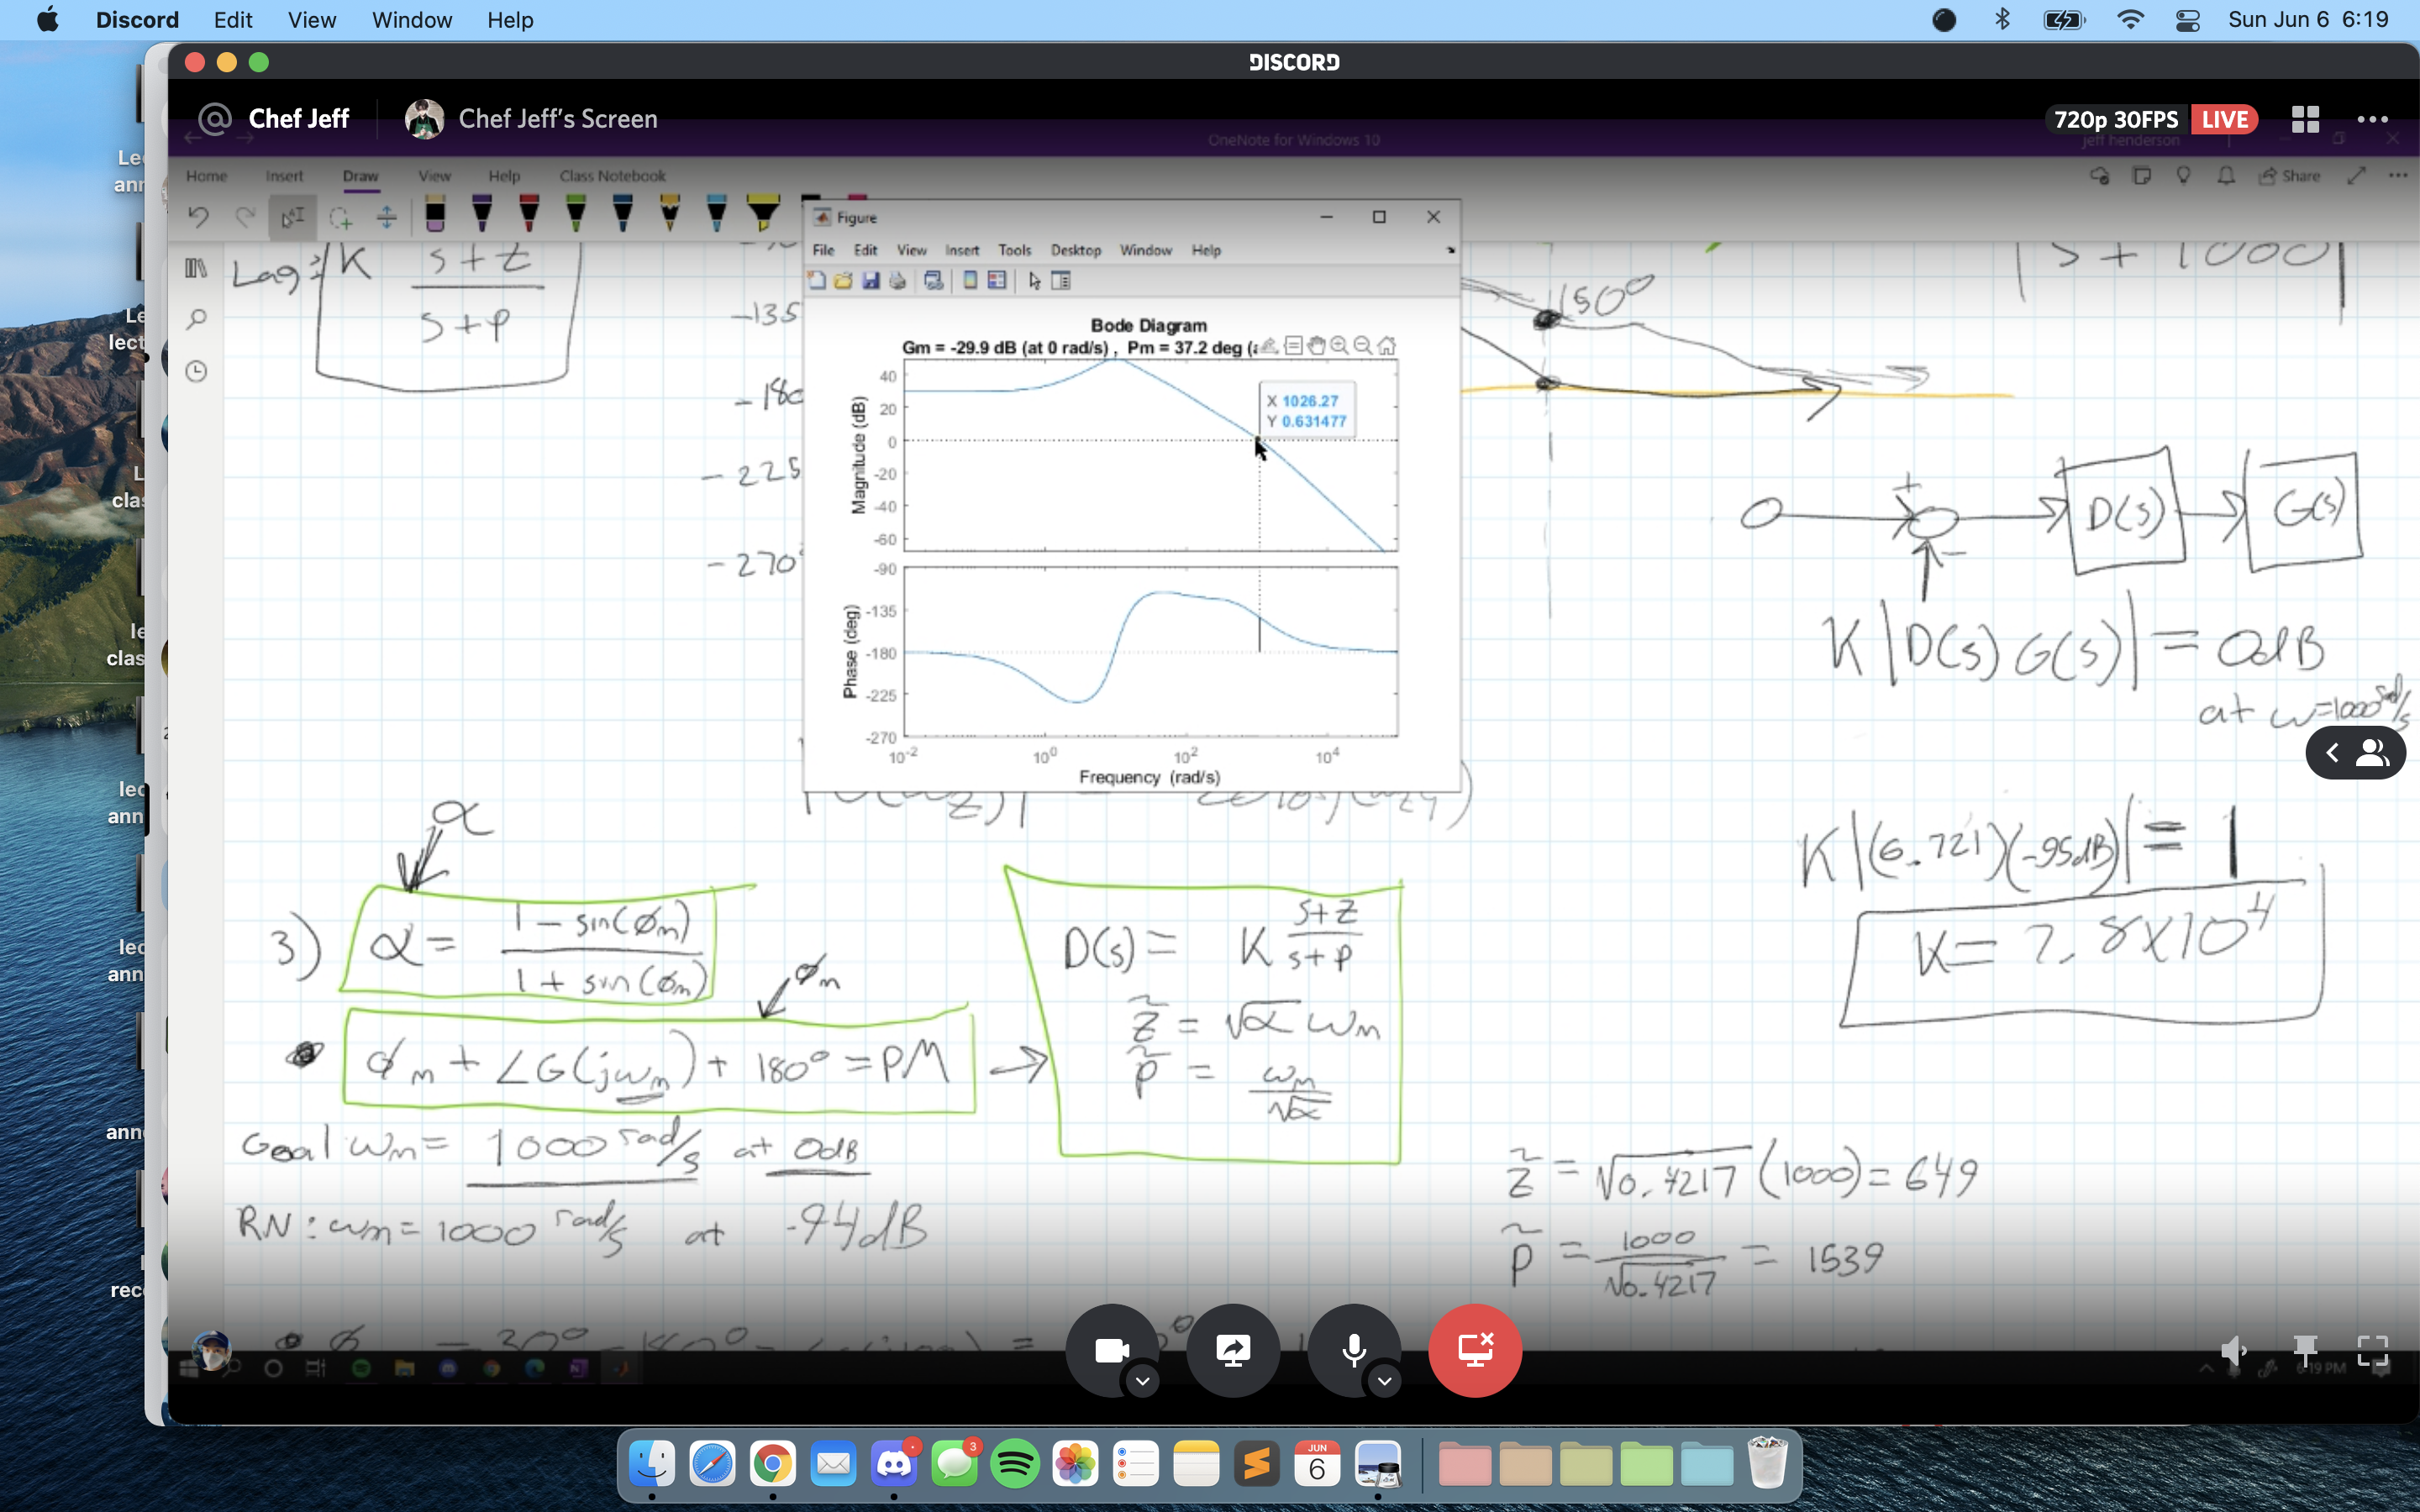 Discord Edit View Window Help
Sun Jun 6 6:19
DISCORD
Chef Jeff
Chef Jeff's Screen
720p 30FPS LIVE
OneNote for Windows 10
jeff henderson
Home Insert Draw View Help Class Notebook
Share
Figure
File Edit View Insert Tools Desktop Window Help
Bode Diagram
Gm = -29.9 dB (at 0 rad/s) , Pm = 37.2 deg (
X 1026.27
Y 0.631477
Magnitude (dB)
40
20
0
-20
-40
-60
Phase (deg)
-90
-135
-180
-225
-270
10^-2 10^0 10^2 10^4
Frequency (rad/s)
Lag: K s+z
s+p
-135
-180
-225
-270°
|s + 1000|
150°
+
D(s) G(s)
-
K |D(s) G(s)| = 0dB
at ω=1000 rad/s
K |(6.721)(-95dB)| = 1
α
3) α = 1 - sin(ϕm)
1 + sin(ϕm)
ϕm
ϕm + ∠G(jωm) + 180° = PM
D(s) = K s+z
s+p
z̃ = √α ωm
p̃ = ωm
√α
Goal ωm = 1000 rad/s at 0dB
RN: ωm = 1000 rad/s at -94dB
z̃ = √0.4217 (1000) = 649
p̃ = 1000 = 1539
√0.4217
6:19 PM
3
JUN
6